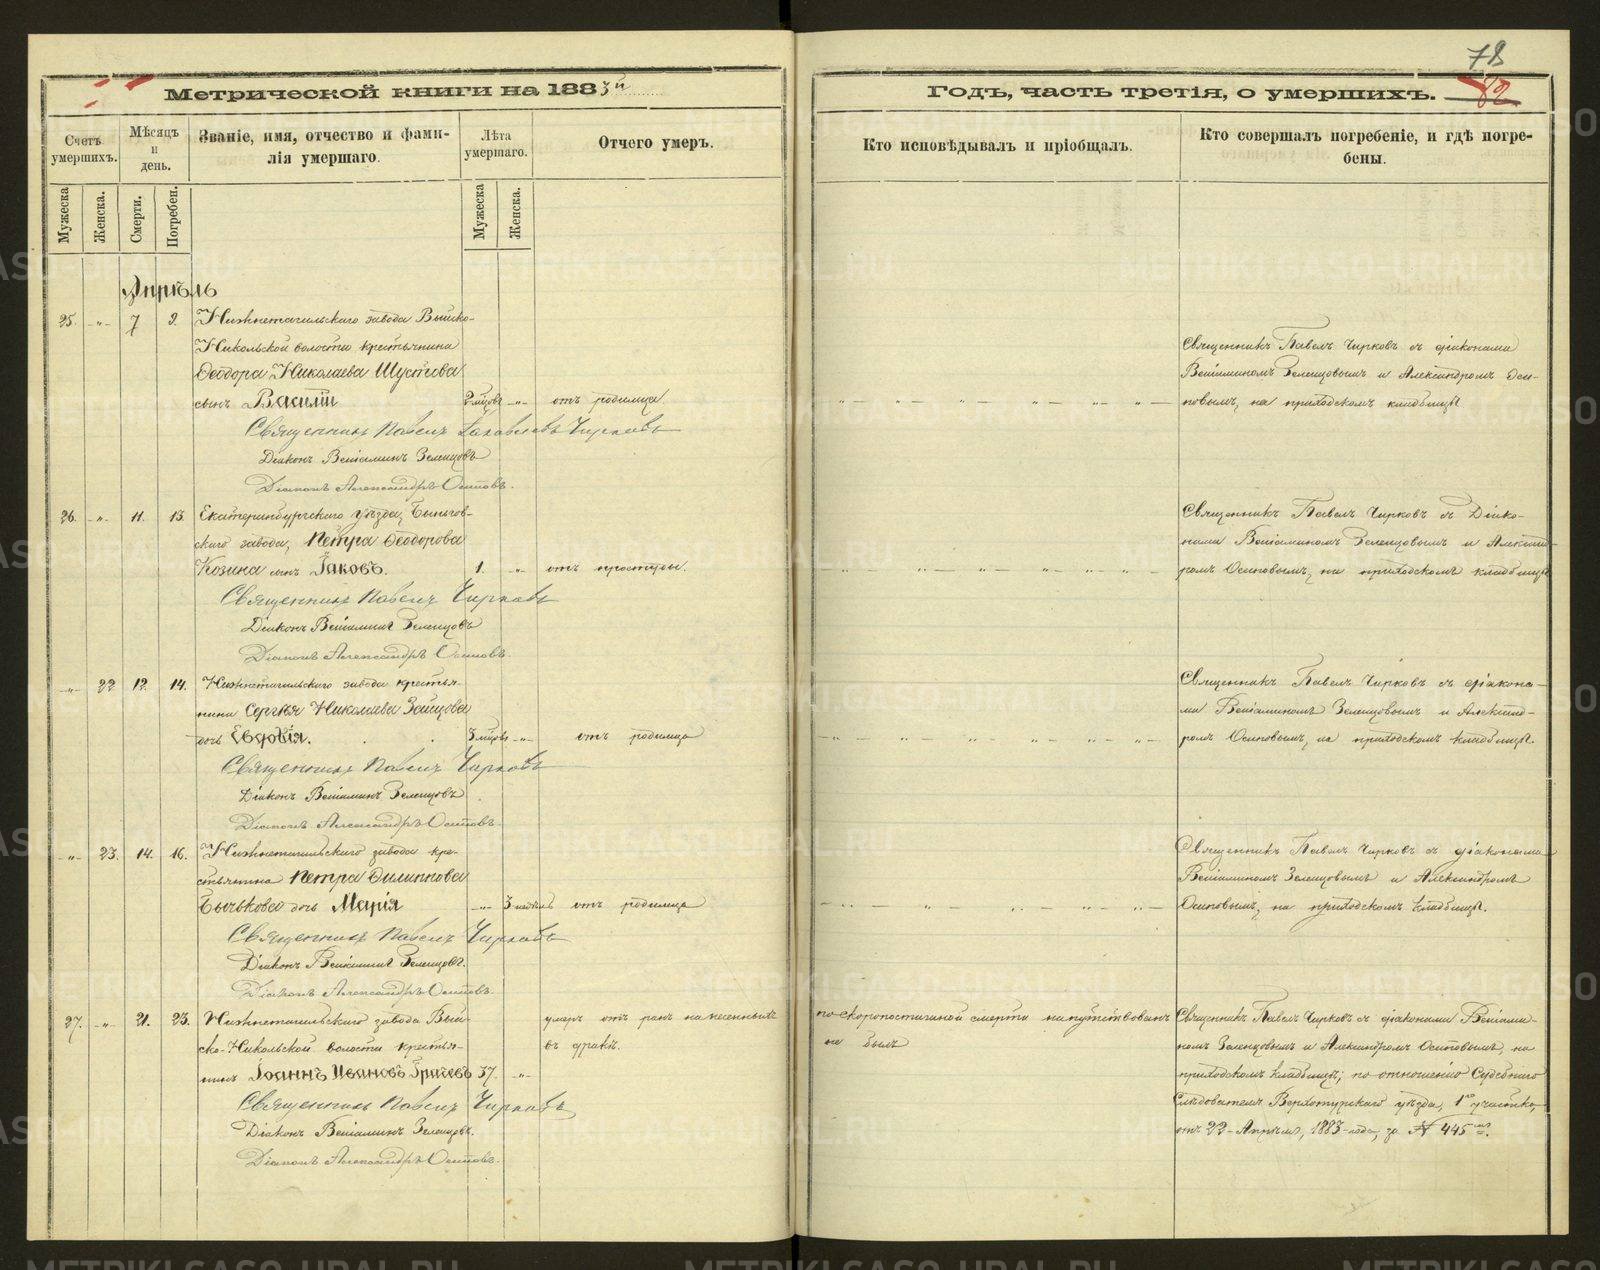 78
82
Метрической книги на 1883й
Годъ, часть третія, о умершихъ.
Счетъ умершихъ.
Мѣсяцъ и день.
Званіе, имя, отчество и фами-
лія умершаго.
Лѣта умершаго.
Отчего умеръ.
Кто исповѣдывалъ и пріобщалъ.
Кто совершалъ погребеніе, и гдѣ погре-
бены.
Мужеска Женска. Смерти. Погребен. Мужеска Женска.
Апрѣль
25. -„- 7 9. Нижнетагильскаго завода Выйско-
Никольской волости крестьянина
Ѳеодора Николаева Шустова
сынъ Василій 2 мѣсяц. -„- отъ родимца
Священникъ Павелъ Чирковъ съ діаконами
Веніаминомъ Зеленцовымъ и Александромъ Оси-
повымъ, на приходскомъ кладбищѣ
Священникъ Павелъ Чирковъ
Діаконъ Веніаминъ Зеленцовъ
Діаконъ Александръ Осиповъ.
26. -„- 11. 13. Екатеринбургскаго уѣзда, Быньгов-
скаго завода, Петра Ѳеодорова
Козина сынъ Іаковъ. 1. -„- отъ простуды.
Священникъ Павелъ Чирковъ съ Діако-
нами Веніаминомъ Зеленцовымъ и Александ-
ромъ Осиповымъ, на приходскомъ кладбищѣ
Священникъ Павелъ Чирковъ
Діаконъ Веніаминъ Зеленцовъ
Діаконъ Александръ Осиповъ.
-„- 22 12. 14. Нижнетагильскаго завода крестья-
нина Сергѣя Николаева Зайцова
дочь Евдокія. 3 мѣсяц. -„- отъ родимца
Священникъ Павелъ Чирковъ съ діакона-
ми Веніаминомъ Зеленцовымъ и Александ-
ромъ Осиповымъ, на приходскомъ кладбищѣ.
Священникъ Павелъ Чирковъ
Діаконъ Веніаминъ Зеленцовъ
Діаконъ Александръ Осиповъ.
-„- 23. 14. 16. Нижнетагильскаго завода кре-
стьянина Петра Филиппова
Бычькова дочь Марія -„- 3 недѣль отъ родимца
Священникъ Павелъ Чирковъ съ діаконами
Веніаминомъ Зеленцовымъ и Александромъ
Осиповымъ, на приходскомъ кладбищѣ.
Священникъ Павелъ Чирковъ
Діаконъ Веніаминъ Зеленцовъ.
Діаконъ Александръ Осиповъ.
27. -„- 21. 23. Нижнетагильскаго завода Вый-
ско-Никольской волости крестья-
нинъ Іоаннъ Ивановъ Грачевъ 37. -„-
умеръ отъ ранъ нанесенныхъ
въ дракѣ.
по скоропостижной смерти напутствованъ
не былъ
Священникъ Павелъ Чирковъ съ діаконами Веніами-
номъ Зеленцовымъ и Александромъ Осиповымъ, на
приходскомъ кладбищѣ; по отношенію Судебнаго
Слѣдователя Верхотурскаго уѣзда, 1го участка,
отъ 22 Апрѣля, 1883 года, за № 445мъ.
Священникъ Павелъ Чирковъ
Діаконъ Веніаминъ Зеленцовъ.
Діаконъ Александръ Осиповъ.
METRIKI.GASO-URAL.RU